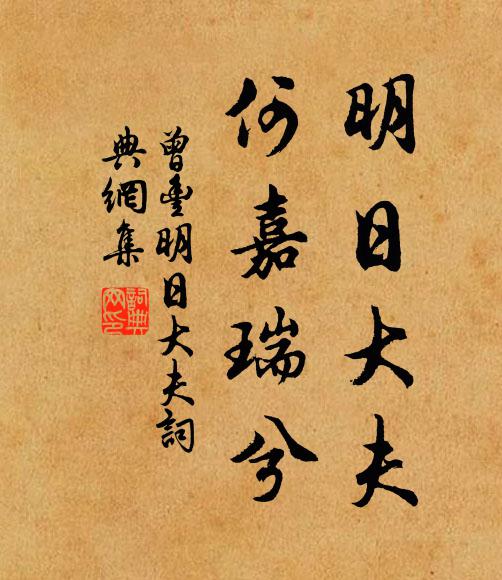 明日大夫
何嘉瑞兮
曾豐明日大夫詞
典網集
詞典網印